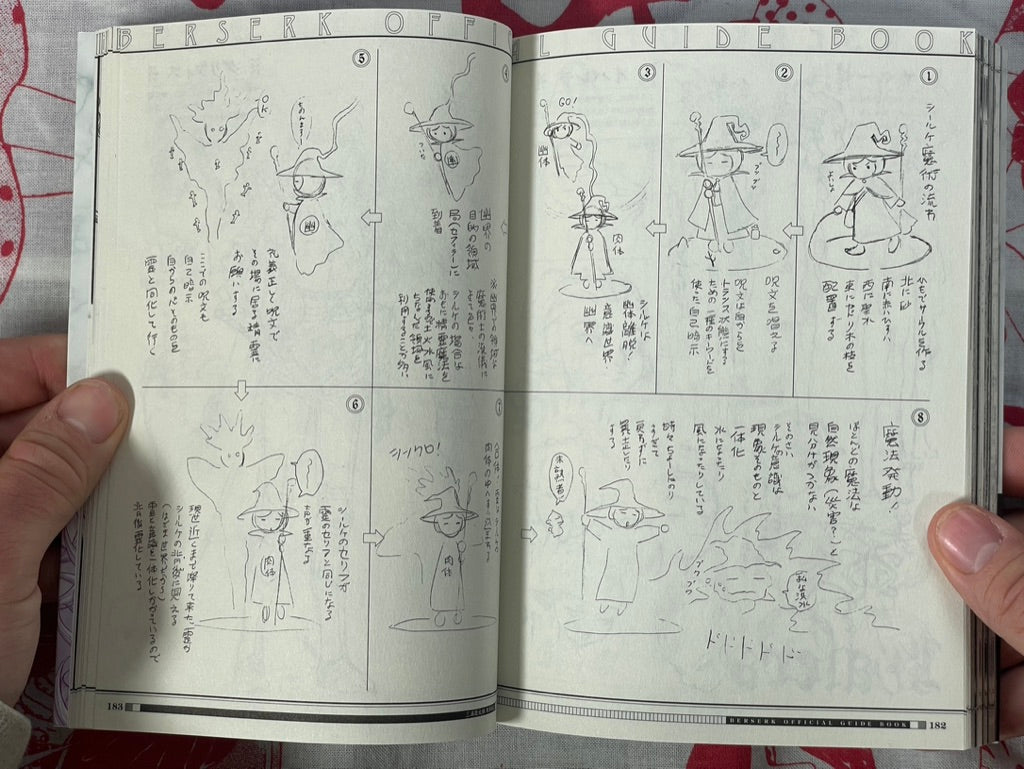 BERSERK OFFI
L GUIDE BOOK
①
シールケ魔術の流れ
北に砂
西に聖水
配置する
②
ブツブツ
呪文を唱える
呪文は自からを
トランス状態にする
ための一種のキーワードを
使った自己暗示
③
GO!
幽体
肉体
シールケは
幽体離脱!
意識世界・
幽界へ
④
幽
幽界の
目的の領域
到着
※幽界での領域は
魔術士の流儀に
シールケの場合は
おもに精霊魔法を
土火水風に
ちなんだ領域を
利用することが多い
⑤
OK
幽
礼義正しく呪文で
その場に居る精霊に
お願いする
ここでの呪文も
自己暗示
自からの心そのものを
霊と同化して行く
⑥
肉体
シールケのセリフが
霊のセリフと同じになる
現世近くまで降りて来た霊が
シールケの背後に見える
⑦
肉体
⑧
魔法発動!
ほとんどの魔法は
自然現象(災害?)と
見分けがつかない
そのさい
シールケの意識は
現象そのものと
一体化
水になったり
風になったりしている
時々ちょーしにのり
すぎて
戻れずに
暴走したり
する
未熟者
ブツブツ
私は洪水
ドドドドド
183
BERSERK OFFICIAL GUIDE BOOK
182